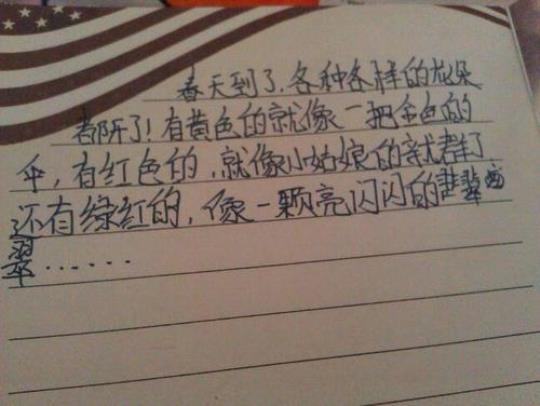 春天到了.各种各样的花朵
都开了!有黄色的就像一把金色的
伞,有红色的,就像小姑娘的
还有绿红的,像一颗亮闪闪的翡翠
翠......